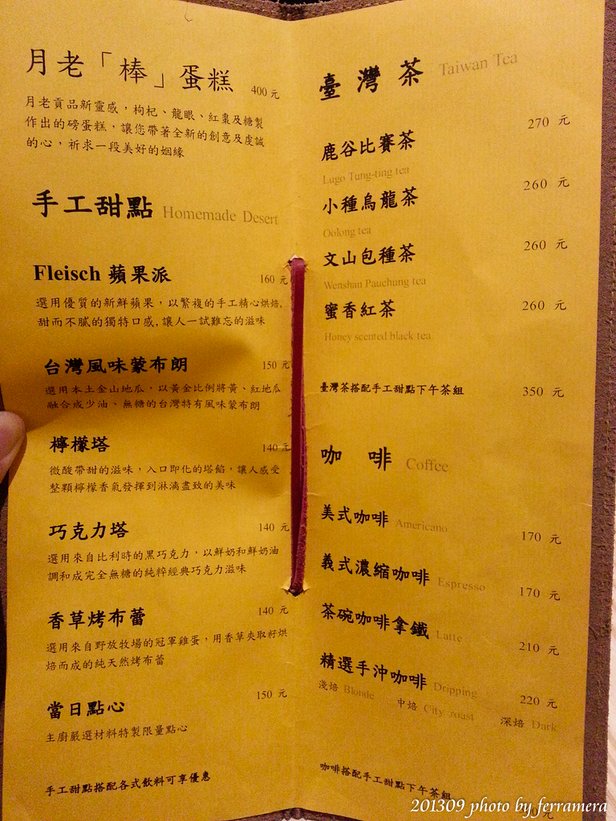 月老「棒」蛋糕 400 元
月老貢品新靈感，枸杞、龍眼、紅棗及糖製
作出的磅蛋糕，讓您帶著全新的創意及虔誠
的心，祈求一段美好的姻緣
手工甜點 Homemade Desert
Fleisch 蘋果派 160 元
選用優質的新鮮蘋果，以繁複的手工精心烘焙，
甜而不膩的獨特口感，讓人一試難忘的滋味
台灣風味蒙布朗 150 元
選用本土金山地瓜，以黃金比例將黃、紅地瓜
融合成少油、無糖的台灣特有風味蒙布朗
檸檬塔 140 元
微酸帶甜的滋味，入口即化的塔餡，讓人感受
整顆檸檬香氣發揮到淋漓盡致的美味
巧克力塔 140 元
選用來自比利時的黑巧克力，以鮮奶和鮮奶油
調和成完全無糖的純粹經典巧克力滋味
香草烤布蕾 140 元
選用來自野放牧場的冠軍雞蛋，用香草夾取籽烘
焙而成的純天然烤布蕾
當日點心 150 元
主廚嚴選材料特製限量點心
手工甜點搭配各式飲料可享優惠
臺灣茶 Taiwan Tea
鹿谷比賽茶 270 元
Lugo Tung-ting tea
小種烏龍茶 260 元
Oolong tea
文山包種茶 260 元
Wenshan Pauchung tea
蜜香紅茶 260 元
Honey scented black tea
臺灣茶搭配手工甜點下午茶組 350 元
咖啡 Coffee
美式咖啡 Americano 170 元
義式濃縮咖啡 Espresso 170 元
茶碗咖啡拿鐵 Latte 210 元
精選手沖咖啡 Dripping 220 元
淺焙 Blonde 中焙 City roast 深焙 Dark
咖啡搭配手工甜點下午茶組 元
201309 photo by ferramera